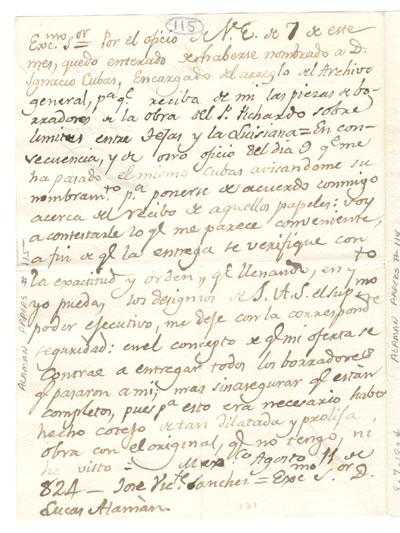 115
Exc.mo S.or Por el oficio de V.E. de 7 de este
mes, quedo enterado de haberse nombrado a D.
Ignacio Cubas, Encargado del arreglo del Archivo
general, p.a q.e reciba de mi las piezas de bo-
rradores de la obra del P. Pichardo sobre
limites entre Tejas y la Luisiana = En con-
secuencia, y de otro oficio del dia 9 q.e me
ha pasado el mismo Cubas avisandome su
nombram.to p.a ponerse de acuerdo conmigo
acerca del recibo de aquellos papeles: voy
a contestarle lo q.e me parece conveniente,
a fin de q.e la entrega se verifique con
la exactitud y orden, q.e llenando, en q.to
yo pueda, los designios de S.A.S. el sup.mo
poder ejecutivo, me deje con la correspond.te
seguridad: en el concepto de q.e mi oferta se
contrae a entregar todos los borradores
q.e pasaron a mi; mas sin asegurar q.e estan
completos, pues p.a esto era necesario haber
hecho cotejo de tan dilatada y prolija
obra con el original, q.e no tengo, ni
he visto = Mex.co Agosto 11 de
824 — Jose Vic.te Sanchez = Exc.mo S.or D.
Lucas Alamàn.
121
ALAMAN PAPERS # 115
ALAMAN PAPERS # 114